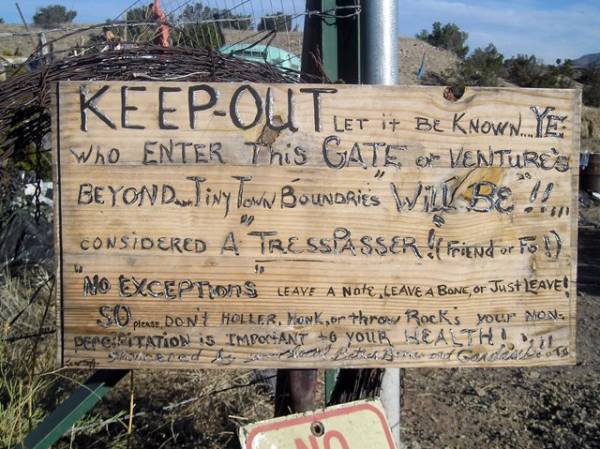 KEEP-OUT LET it BE KNOWN... YE:
WHO ENTER This GATE or VENTURE'S
BEYOND... Tiny Town BOUNDRIES WILL BE !!
CONSIDERED A "TRESSPASSER! (Friend or Fo!)
"NO EXCEPTIONS" LEAVE A NOTE, LEAVE A BONE, or Just LEAVE!
SO please, DON'T HOLLER, HONK, or throw Rock's your NON-
PERCIPITATION IS IMPORTANT to YOUR HEALTH!
by and
NO